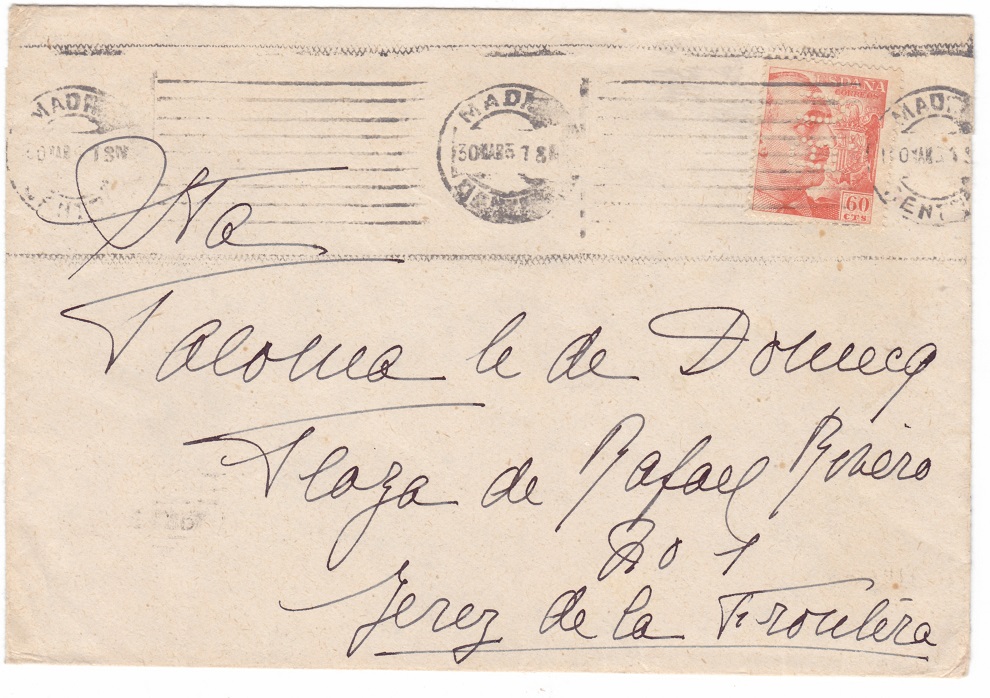 MADRI 30 MAR 5 18N
MADRI 30MAR5 18N
ESPAÑA
CORREOS
60
CTS
MADRI 0 MAR 5
Sta
Paloma h de Domecq
Plaza de Rafael Rivero
No 1
Jerez de la Frontera